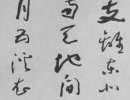 支離東北
南天地間
月五溪衣